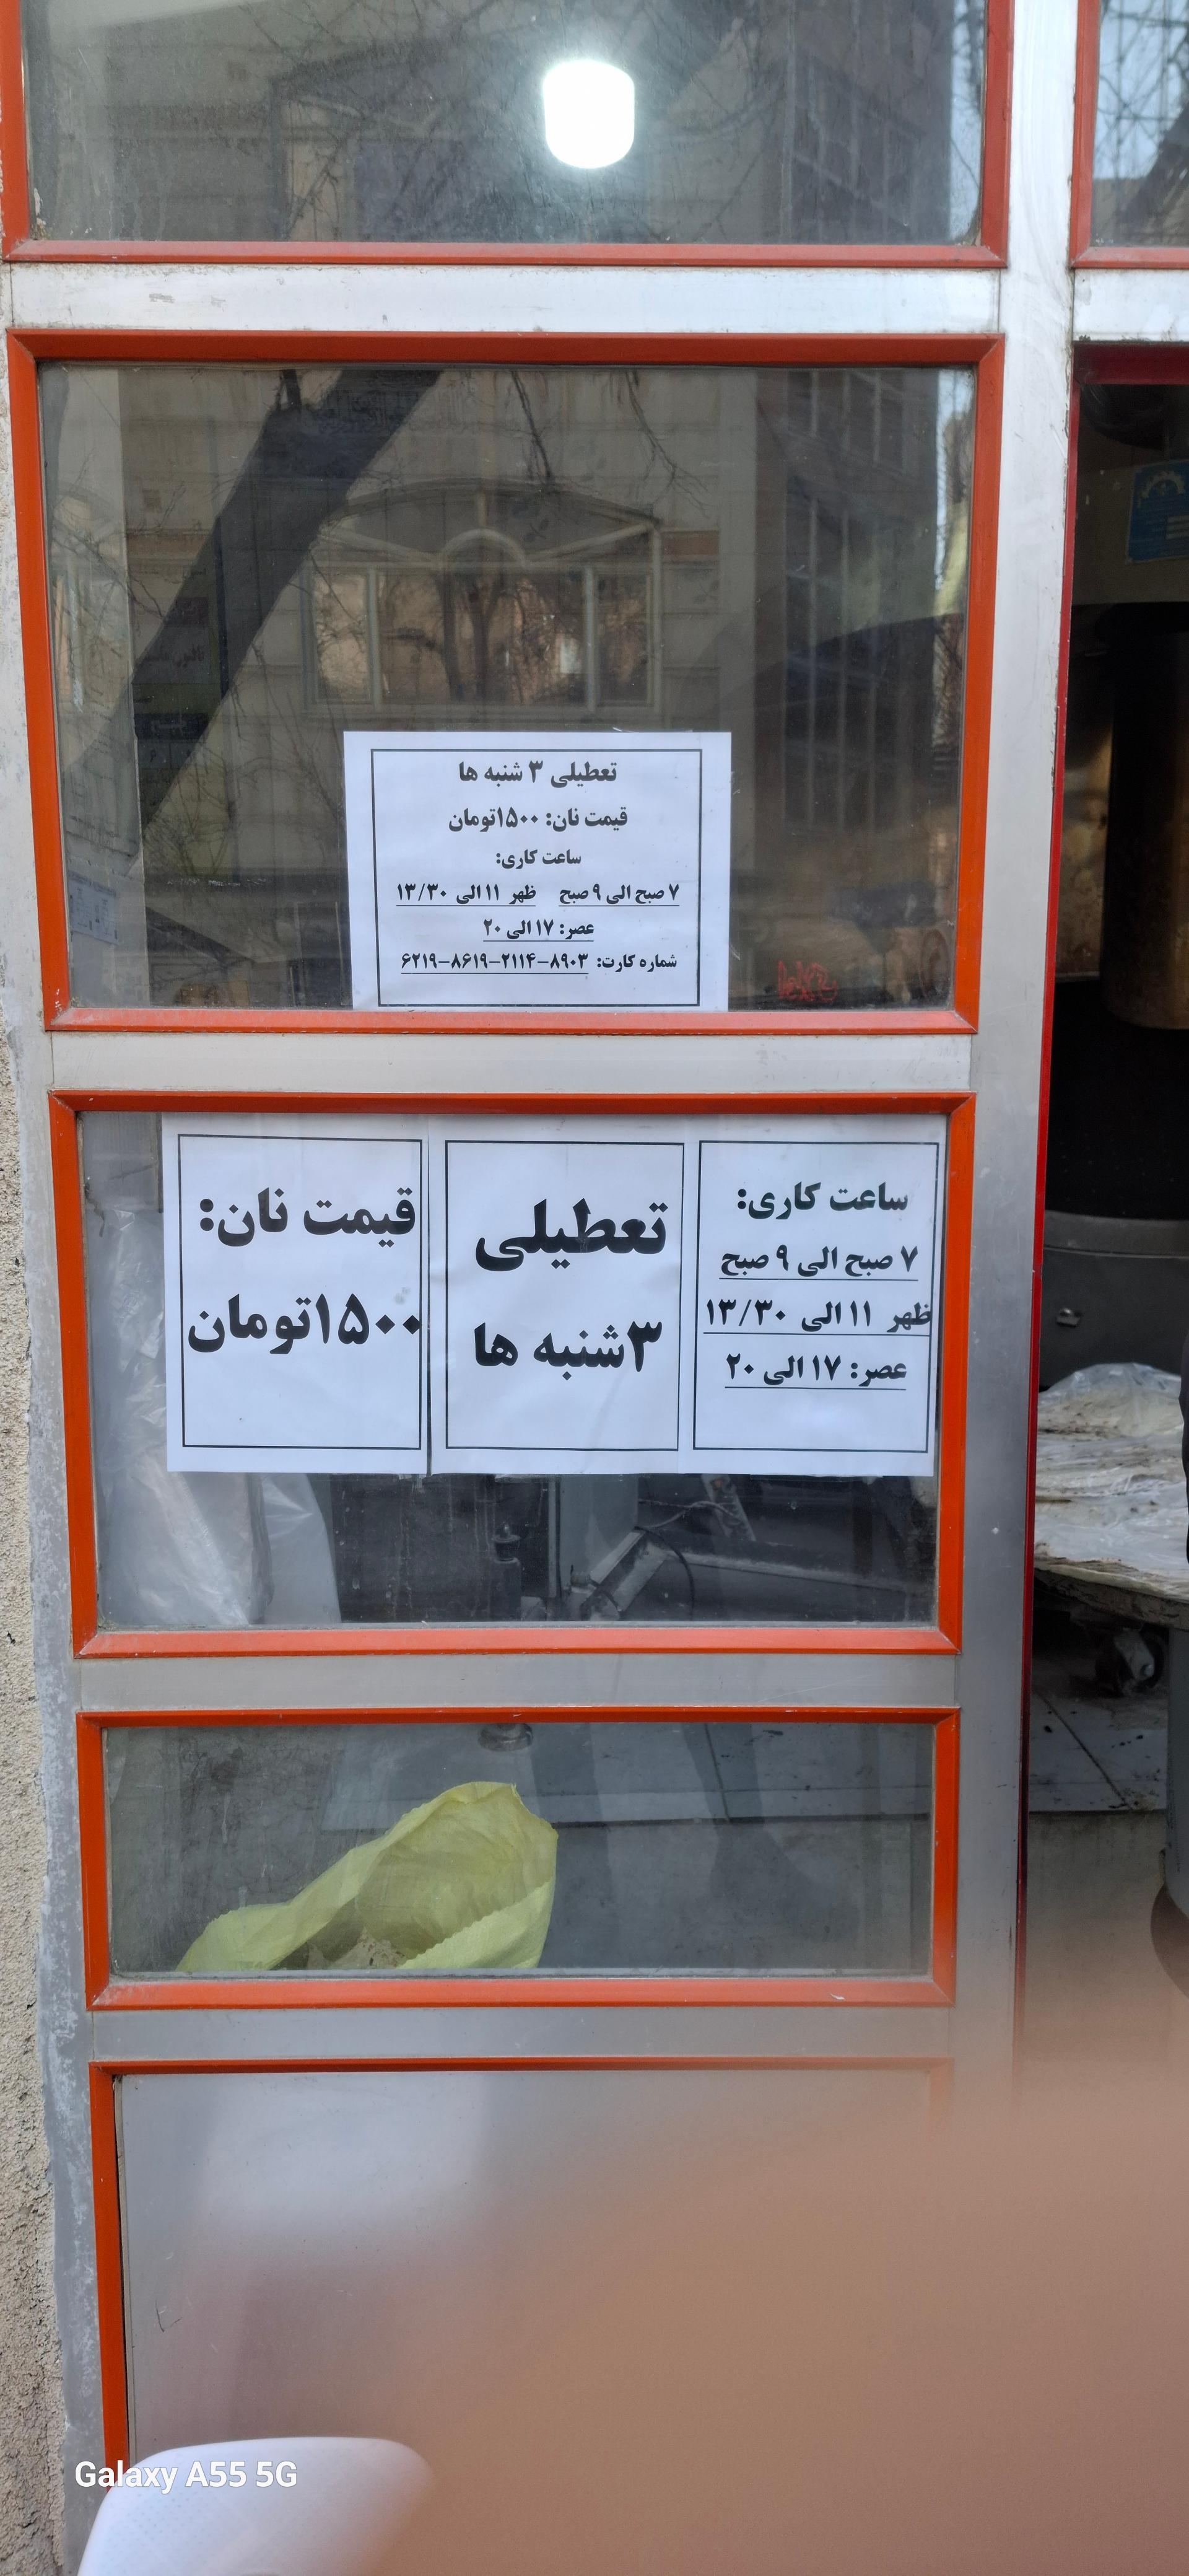 تعطیلی ۳ شنبه ها
قیمت نان: ۱۵۰۰تومان
ساعت کاری:
۷ صبح الی ۹ صبح ظهر ۱۱ الی ۱۳/۳۰
عصر: ۱۷ الی ۲۰
شماره کارت: ۶۲۱۹-۸۶۱۹-۲۱۱۴-۸۹۰۳
ساعت کاری:
۷ صبح الی ۹ صبح
ظهر ۱۱ الی ۱۳/۳۰
عصر: ۱۷ الی ۲۰
تعطیلی
۳شنبه ها
قیمت نان:
۱۵۰۰تومان
Galaxy A55 5G